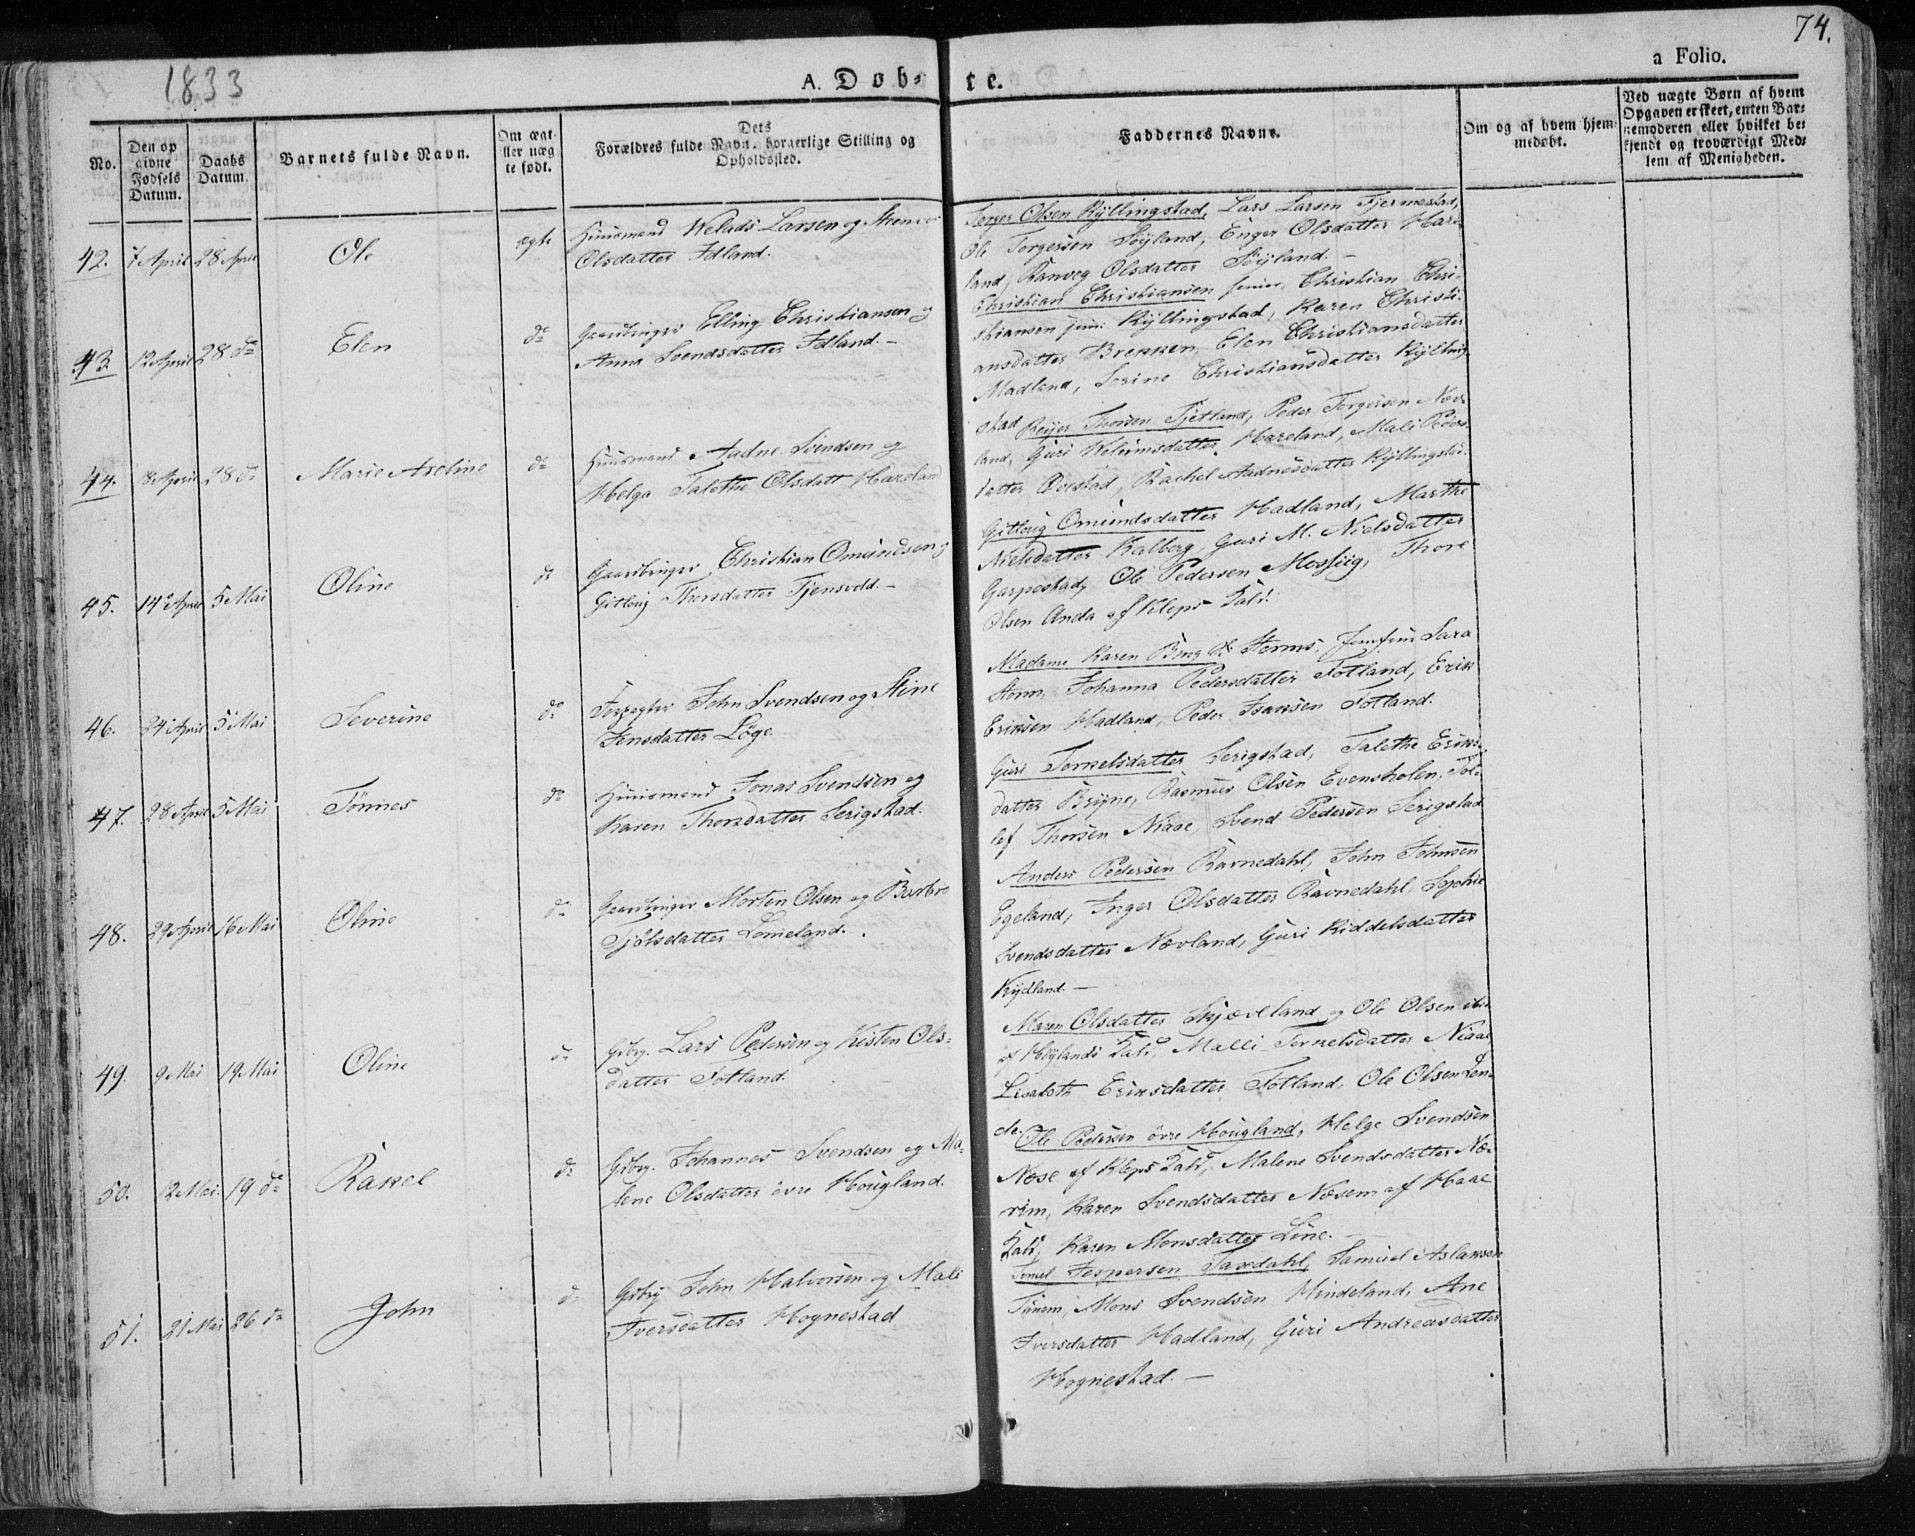 1833
74.
A. Døb-
te.
a Folio.
No.
Den op
givne
Fødsels
Datum.
Daabs
Datum.
Barnets fulde Navn.
Om ægt-
eller uæg
te født.
Dets
Forældres fulde Navn, borgerlige Stilling og
Opholdssted.
Faddernes Navne.
Om og af hvem hjem-
medøbt.
Ved uægte Børn af hvem
Opgaven er skeet, enten Bar-
nemoderen eller hvilket be-
kjendt og troværdigt Med-
lem af Menigheden.
42. 7 April 28 April Ole ægte Huusmand Larsen og
Olsdatter Idland.
Olsen Kyllingstad, Lars Larsen Tjermestad,
Ole Torgersen Söyland, Enger Olsdatter Hare-
land, Ranveg Olsdatter Söyland. -
43. 12 April 28 do Elen do Gaardbruger Elling Christiansen og
Anna Svendsdatter Idland. -
Christian Christiansen senior, Christian Chri-
stiansen jun: Kyllingstad, Karen Christi-
ansdatter Brekken, Elen Christiansdatter
Madland, Serine Christiansdatter Kylling-
stad
44. 18 April 28 do Marie Axeline do Huusmand Aadne Svendsen og
Helga Talethe Olsdatt Hareland
Reijer Thorsen Tjetland, Peder Torgersen Næv-
land, Guri Hareland, Mali Peders-
datter Ovestad, Rachel Aadnesdatter Kyllingstad.
45. 14de April 5 Mai Oline do Gaardbruger Christian Omundsen og
Gitloug Thorsdatter Tjensvold. -
Gitloug Omundsdatter Hadland, Marthe
Nielsdatter Kalberg, Guri M. Nielsdatter
Garpestad, Ole Pedersen Mossiig, Thore
Olsen Anda af Kleps Kald.
46. 24de April 5 Mai Severine do Forpagter John Svendsen og Stine
Jensdatter Löge
Madame Karen Bing Storms, Jomfrue Sara
Storm, Johanna Pedersdatter Fotland, Erik
Eriksen Hadland, Peder Isaksen Fotland.
47. 28 April 5 Mai Tönnes do Huusmand Jonas Svendsen og
Karen Thorsdatter Serigstad.
Guri Torkelsdatter Serigstad, Talethe Eriks-
datter Bryne, Rasmus Olsen Evensholen, Tol-
lef Thorsen Niaae, Svend Pedersen Serigstad
48. 29 April 16 Mai Oline do Gaardbruger Morten Olsen og Barbro
Tjölsdatter Lomeland.
Anders Pedersen Ravnedahl, John Johnsen
Egeland, Inger Olsdatter Ravnedahl, Sophie
Svendsdatter Nævland, Guri Kiddelsdatter
Kydland. -
49. 9 Mai 19 Mai Oline do Gdbrg. Lars Pedersen og Kisten Ols-
datter Fotland.
Maren Olsdatter Skjæveland og Ole Olsen ibid
af Höylands Kald, Malli Torkelsdatter Niaae,
Lisabeth Eriksdatter Fotland, Ole Olsen Len-
de.
50. 12 Mai 19 do Rakel do Gdbrg. Johannes Svendsen og Ma-
lene Olsdatter övre Hougland.
Ole Pedersen övre Hougland, Helge Svendsen
Næse af Kleps Kald, Malene Svendsdatter Næ-
rim, Karen Svendsdatter Næsem af Haae
Kald, Karen Monsdatter Line. -
51. 21 Mai 26 do John do Gdbrg John Halvorsen og Mali
Iversdatter Hognestad
Jespersen Taxdahl, Samuel Aslaksen
Tunem, Mons Svendsen Mindeland, Ane
Iversdatter Hadland, Guri Andreasdatter
Hognestad. -